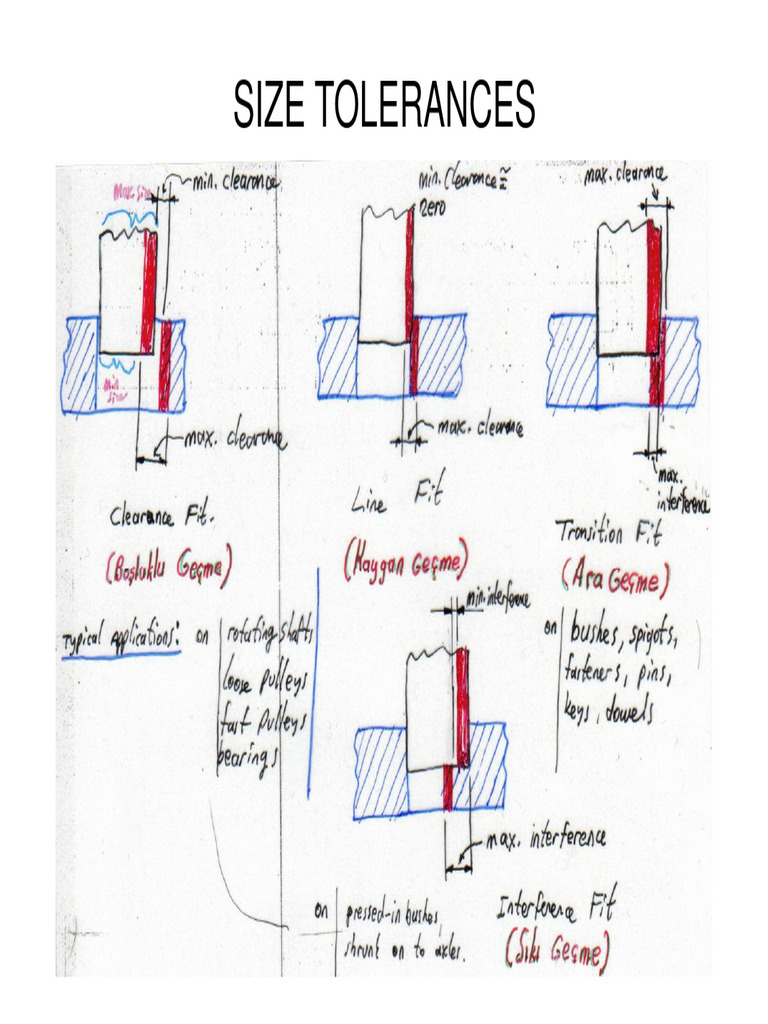 SIZE TOLERANCES
Max. size
min. clearance
min
size
max. clearance
Clearance Fit.
(Boşluklu Geçme)
min. clearance ≅
zero
max. clearance
Line Fit
(Kaygan Geçme)
max. clearance
max.
interference
Transition Fit
(Ara Geçme)
Typical Applications: on
rotating shafts
loose pulleys
fast pulleys
bearings
min. interference
max. interference
on
bushes, spigots,
fasteners, pins,
keys, dowels
on
pressed-in bushes,
shrunt on to axles.
Interference Fit
(Sıkı Geçme)